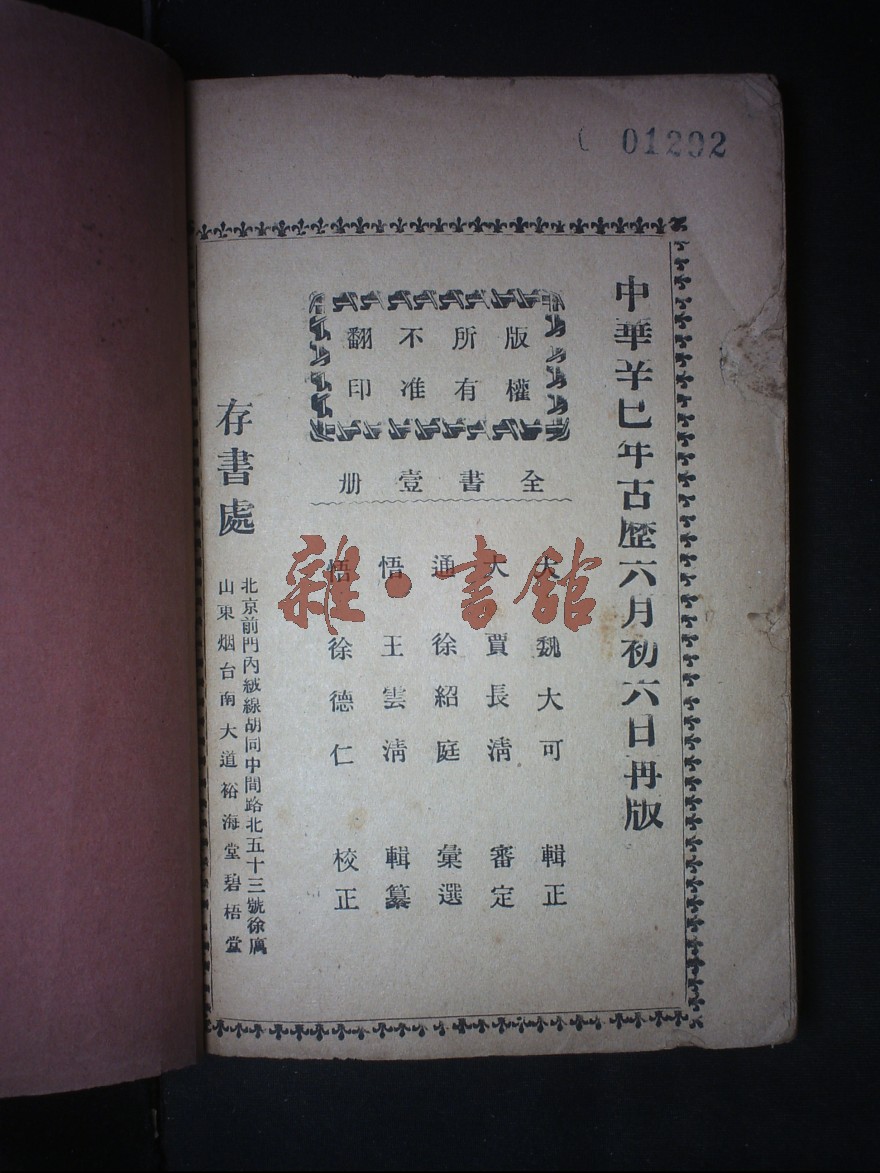 01292
中華辛巳年古歷六月初六日再版
版權
所有
不准
翻印
全書壹册
大 魏大可 輯正
大 賈長淸 審定
通 徐紹庭 彙選
悟 王雲淸 輯纂
悟 徐德仁 校正
存書處
北京前門內絨線胡同中間路北五十三號徐寓
山東烟台南大道裕海堂碧梧堂
雜·書館